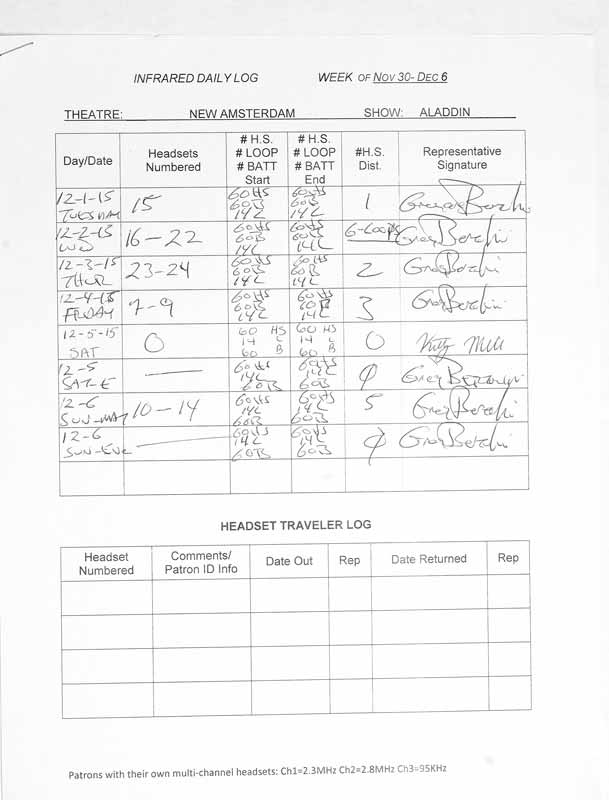 INFRARED DAILY LOG WEEK OF NOV 30- DEC 6
THEATRE: NEW AMSTERDAM SHOW: ALADDIN
Day/Date Headsets Numbered # H.S. # LOOP # BATT Start # H.S. # LOOP # BATT End #H.S. Dist. Representative Signature
12-1-15 TUESDAY 15 60HS 60B 14L 60HS 60B 14L 1
12-2-15 WD 16-22 60HS 60B 14L 60HS 60B 14L 6-Loops
12-3-15 THUR 23-24 60HS 60B 14L 60HS 60B 14L 2
12-4-15 FRIDAY 7-9 60HS 60B 14L 60HS 60B 14L 3
12-5-15 SAT 0 60 HS 14 L 60 B 60 HS 14 L 60 B 0
12-5 SAT-E — 60HS 14L 60B 60HS 14L 60B 0
12-6 SUN-MAT 10-14 60HS 14L 60B 60HS 14L 60B 5
12-6 SUN-EVE — 60HS 14L 60B 60HS 14L 60B 0
HEADSET TRAVELER LOG
Headset Numbered Comments/ Patron ID Info Date Out Rep Date Returned Rep
Patrons with their own multi-channel headsets: Ch1=2.3MHz Ch2=2.8MHz Ch3=95KHz